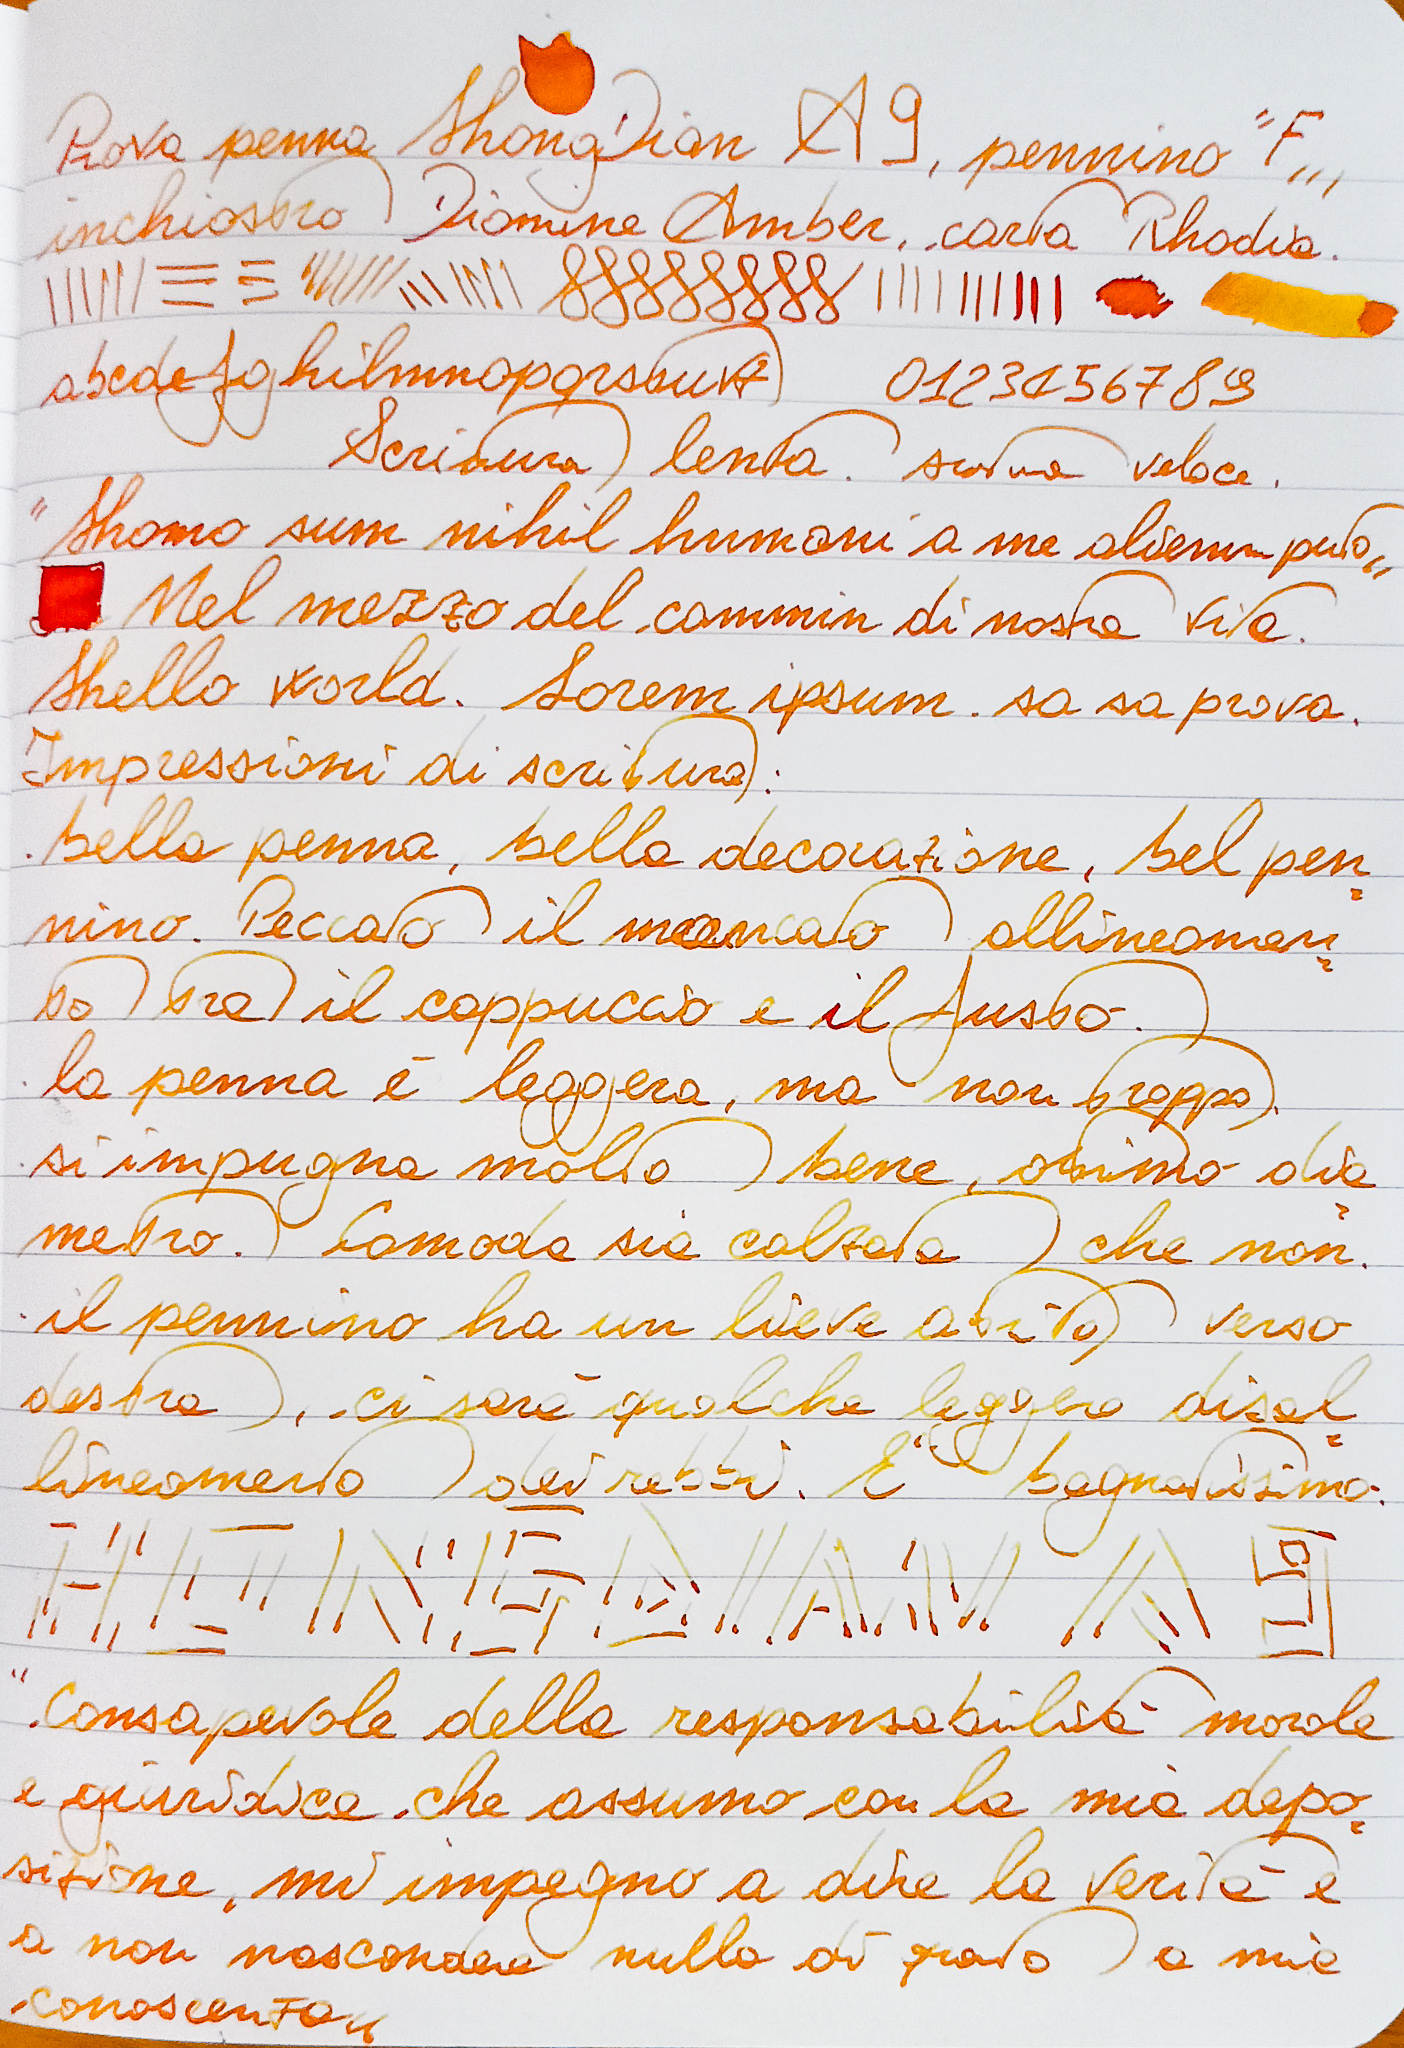 Prova penna HongDian A9, pennino "F",
inchiostro Diamine Amber, carta Rhodia.
abcdefghilmnopqrstuvz 0123456789
Scrittura lenta. scrittura veloce.
"Homo sum nihil humani a me alienum puto"
Nel mezzo del cammin di nostra vita.
Hello world. Lorem ipsum. sa sa prova.
Impressioni di scrittura:
. bella penna, bella decorazione, bel pen-
nino. Peccato il mancato allineamen-
to tra il cappuccio e il fusto.
. la penna è leggera, ma non troppo.
. si impugna molto bene, ottimo dia-
metro. Comoda sia calzata che non.
. il pennino ha un lieve attrito verso
destra, ci sarà qualche leggero disal-
lineamento dei rebbi. E' bagnatissimo.
HONGDIAN A9
"Consapevole della responsabilità morale
e giuridica che assumo con la mia depo-
sizione, mi impegno a dire la verità e
a non nascondere nulla di quanto a mia
conoscenza"